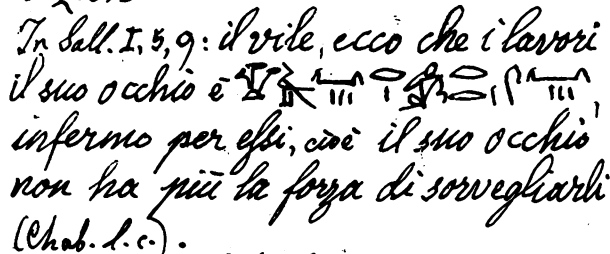 In Sall. I, 5, 9: il vile, ecco che i lavori
il suo occhio è
infermo per essi, cioè il suo occhio
non ha più la forza di sorvegliarli
(Chab. l. c.).